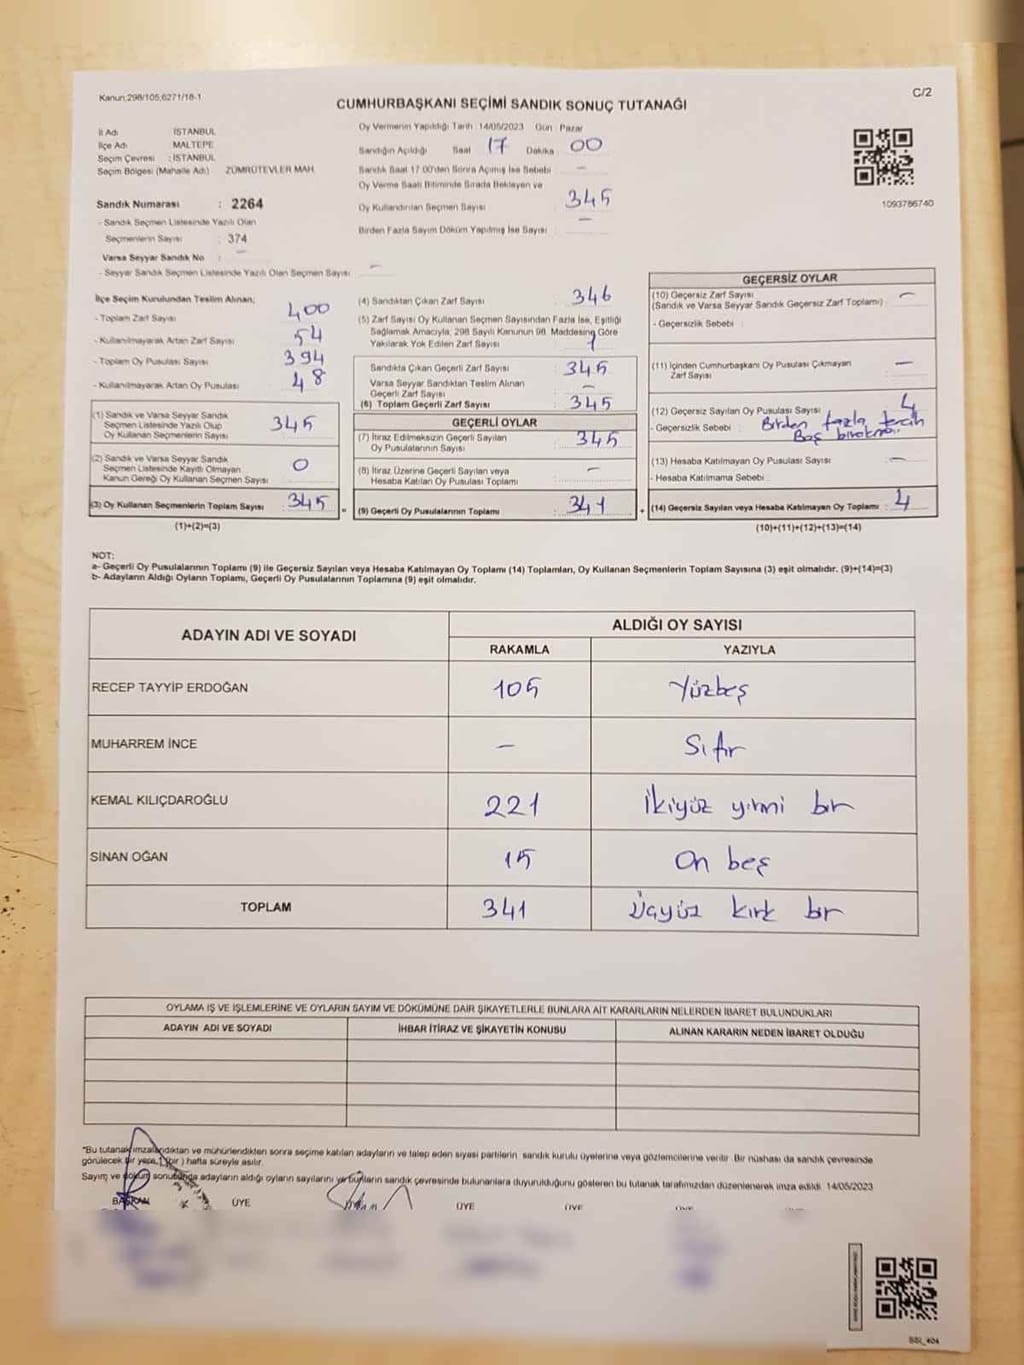 Kanun:298/105;6271/18-1
CUMHURBAŞKANI SEÇİMİ SANDIK SONUÇ TUTANAĞI
C/2
İl Adı : İSTANBUL
İlçe Adı : MALTEPE
Seçim Çevresi : İSTANBUL
Seçim Bölgesi (Mahalle Adı) : ZÜMRÜTEVLER MAH.
Sandık Numarası : 2264
- Sandık Seçmen Listesinde Yazılı Olan
Seçmenlerin Sayısı : 374
Varsa Seyyar Sandık No : —
- Seyyar Sandık Seçmen Listesinde Yazılı Olan Seçmen Sayısı : —
Oy Vermenin Yapıldığı Tarih : 14/05/2023 Gün : Pazar
Sandığın Açıldığı Saat 17 Dakika 00
Sandık Saat 17.00'den Sonra Açılmış İse Sebebi : —
Oy Verme Saati Bitiminde Sırada Bekleyen ve
Oy Kullandırılan Seçmen Sayısı : 345
Birden Fazla Sayım Döküm Yapılmış İse Sayısı : —
1093786740
İlçe Seçim Kurulundan Teslim Alınan;
- Toplam Zarf Sayısı : 400
- Kullanılmayarak Artan Zarf Sayısı : 54
- Toplam Oy Pusulası Sayısı : 394
- Kullanılmayarak Artan Oy Pusulası : 48
(1) Sandık ve Varsa Seyyar Sandık
Seçmen Listesinde Yazılı Olup
Oy Kullanan Seçmenlerin Sayısı : 345
(2) Sandık ve Varsa Seyyar Sandık
Seçmen Listesinde Kayıtlı Olmayan
Kanun Gereği Oy Kullanan Seçmen Sayısı : 0
(3) Oy Kullanan Seçmenlerin Toplam Sayısı : 345
(1)+(2)=(3)
(4) Sandıktan Çıkan Zarf Sayısı : 346
(5) Zarf Sayısı Oy Kullanan Seçmen Sayısından Fazla İse, Eşitliği
Sağlamak Amacıyla, 298 Sayılı Kanunun 98. Maddesine Göre
Yakılarak Yok Edilen Zarf Sayısı : 1
Sandıkta Çıkan Geçerli Zarf Sayısı : 345
Varsa Seyyar Sandıktan Teslim Alınan
Geçerli Zarf Sayısı : —
(6) Toplam Geçerli Zarf Sayısı : 345
GEÇERLİ OYLAR
(7) İtiraz Edilmeksizin Geçerli Sayılan
Oy Pusulalarının Sayısı : 345
(8) İtiraz Üzerine Geçerli Sayılan veya
Hesaba Katılan Oy Pusulası Toplamı : —
(9) Geçerli Oy Pusulalarının Toplamı : 341
GEÇERSİZ OYLAR
(10) Geçersiz Zarf Sayısı : —
(Sandık ve Varsa Seyyar Sandık Geçersiz Zarf Toplamı)
- Geçersizlik Sebebi :
(11) İçinden Cumhurbaşkanı Oy Pusulası Çıkmayan
Zarf Sayısı : —
(12) Geçersiz Sayılan Oy Pusulası Sayısı : 4
- Geçersizlik Sebebi : Birden fazla tercih
Boş bırakma.
(13) Hesaba Katılmayan Oy Pusulası Sayısı : —
- Hesaba Katılmama Sebebi :
(14) Geçersiz Sayılan veya Hesaba Katılmayan Oy Toplamı : 4
(10)+(11)+(12)+(13)=(14)
NOT:
a- Geçerli Oy Pusulalarının Toplamı (9) ile Geçersiz Sayılan veya Hesaba Katılmayan Oy Toplamı (14) Toplamları, Oy Kullanan Seçmenlerin Toplam Sayısına (3) eşit olmalıdır. (9)+(14)=(3)
b- Adayların Aldığı Oyların Toplamı, Geçerli Oy Pusulalarının Toplamına (9) eşit olmalıdır.
ADAYIN ADI VE SOYADI
ALDIĞI OY SAYISI
RAKAMLA YAZIYLA
RECEP TAYYİP ERDOĞAN 105 Yüzbeş
MUHARREM İNCE — Sıfır
KEMAL KILIÇDAROĞLU 221 İkiyüz yirmi bir
SİNAN OĞAN 15 On beş
TOPLAM 341 Üçyüz kırk bir
OYLAMA İŞ VE İŞLEMLERİNE VE OYLARIN SAYIM VE DÖKÜMÜNE DAİR ŞİKAYETLERLE BUNLARA AİT KARARLARIN NELERDEN İBARET BULUNDUKLARI
ADAYIN ADI VE SOYADI İHBAR İTİRAZ VE ŞİKAYETİN KONUSU ALINAN KARARIN NEDEN İBARET OLDUĞU
*Bu tutanak imzalandıktan ve mühürlendikten sonra seçime katılan adayların ve talep eden siyasi partilerin sandık kurulu üyelerine veya gözlemcilerine verilir. Bir nüshası da sandık çevresinde
görülecek bir yere, 1 (bir) hafta süreyle asılır.
Sayım ve döküm sonucunda adayların aldığı oyların sayılarını ve bunların sandık çevresinde bulunanlara duyurulduğunu gösteren bu tutanak tarafımızdan düzenlenerek imza edildi. 14/05/2023
BAŞKAN ÜYE ÜYE ÜYE